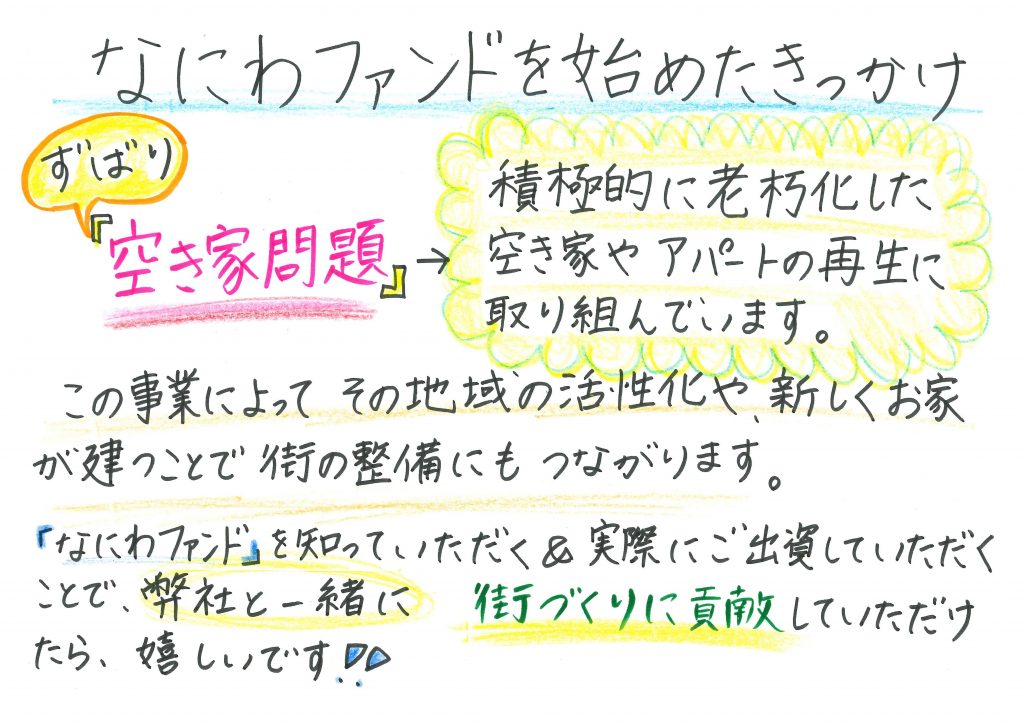 なにわファンドを始めたきっかけ
ずばり
『空き家問題』→
積極的に老朽化した
空き家やアパートの再生に
取り組んでいます。
この事業によってその地域の活性化や、新しくお家
が建つことで街の整備にもつながります。
「なにわファンド」を知っていただく&実際にご出資していただく
ことで、弊社と一緒に 街づくりに貢献していただけ
たら、嬉しいです!!